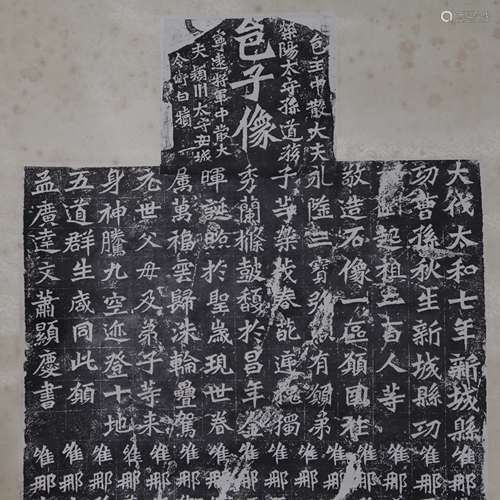 邑主中散大夫
滎陽太守孫道務
邑子像
寧遠將軍中散大
夫潁川太守安城
令衛白犢
大伐太和七年新城縣
功曹孫秋生新城縣功
起祖二百人等
敬造石像一區願国祚
永隆三寳弥顕有願弟
子等榮茂春葩庭槐獨
秀蘭條鼓馥於昌年金
暉誕照於聖歳現世眷
属萬福雲歸洙輪疊駕
元世父母及弟子等来
身神騰九空迹登十地
五道群生咸同此願
孟廣達文蕭顯慶書
維那 維那 維那 維那 維那 維那 維那 維那 維那 維那 維那 維那 維那